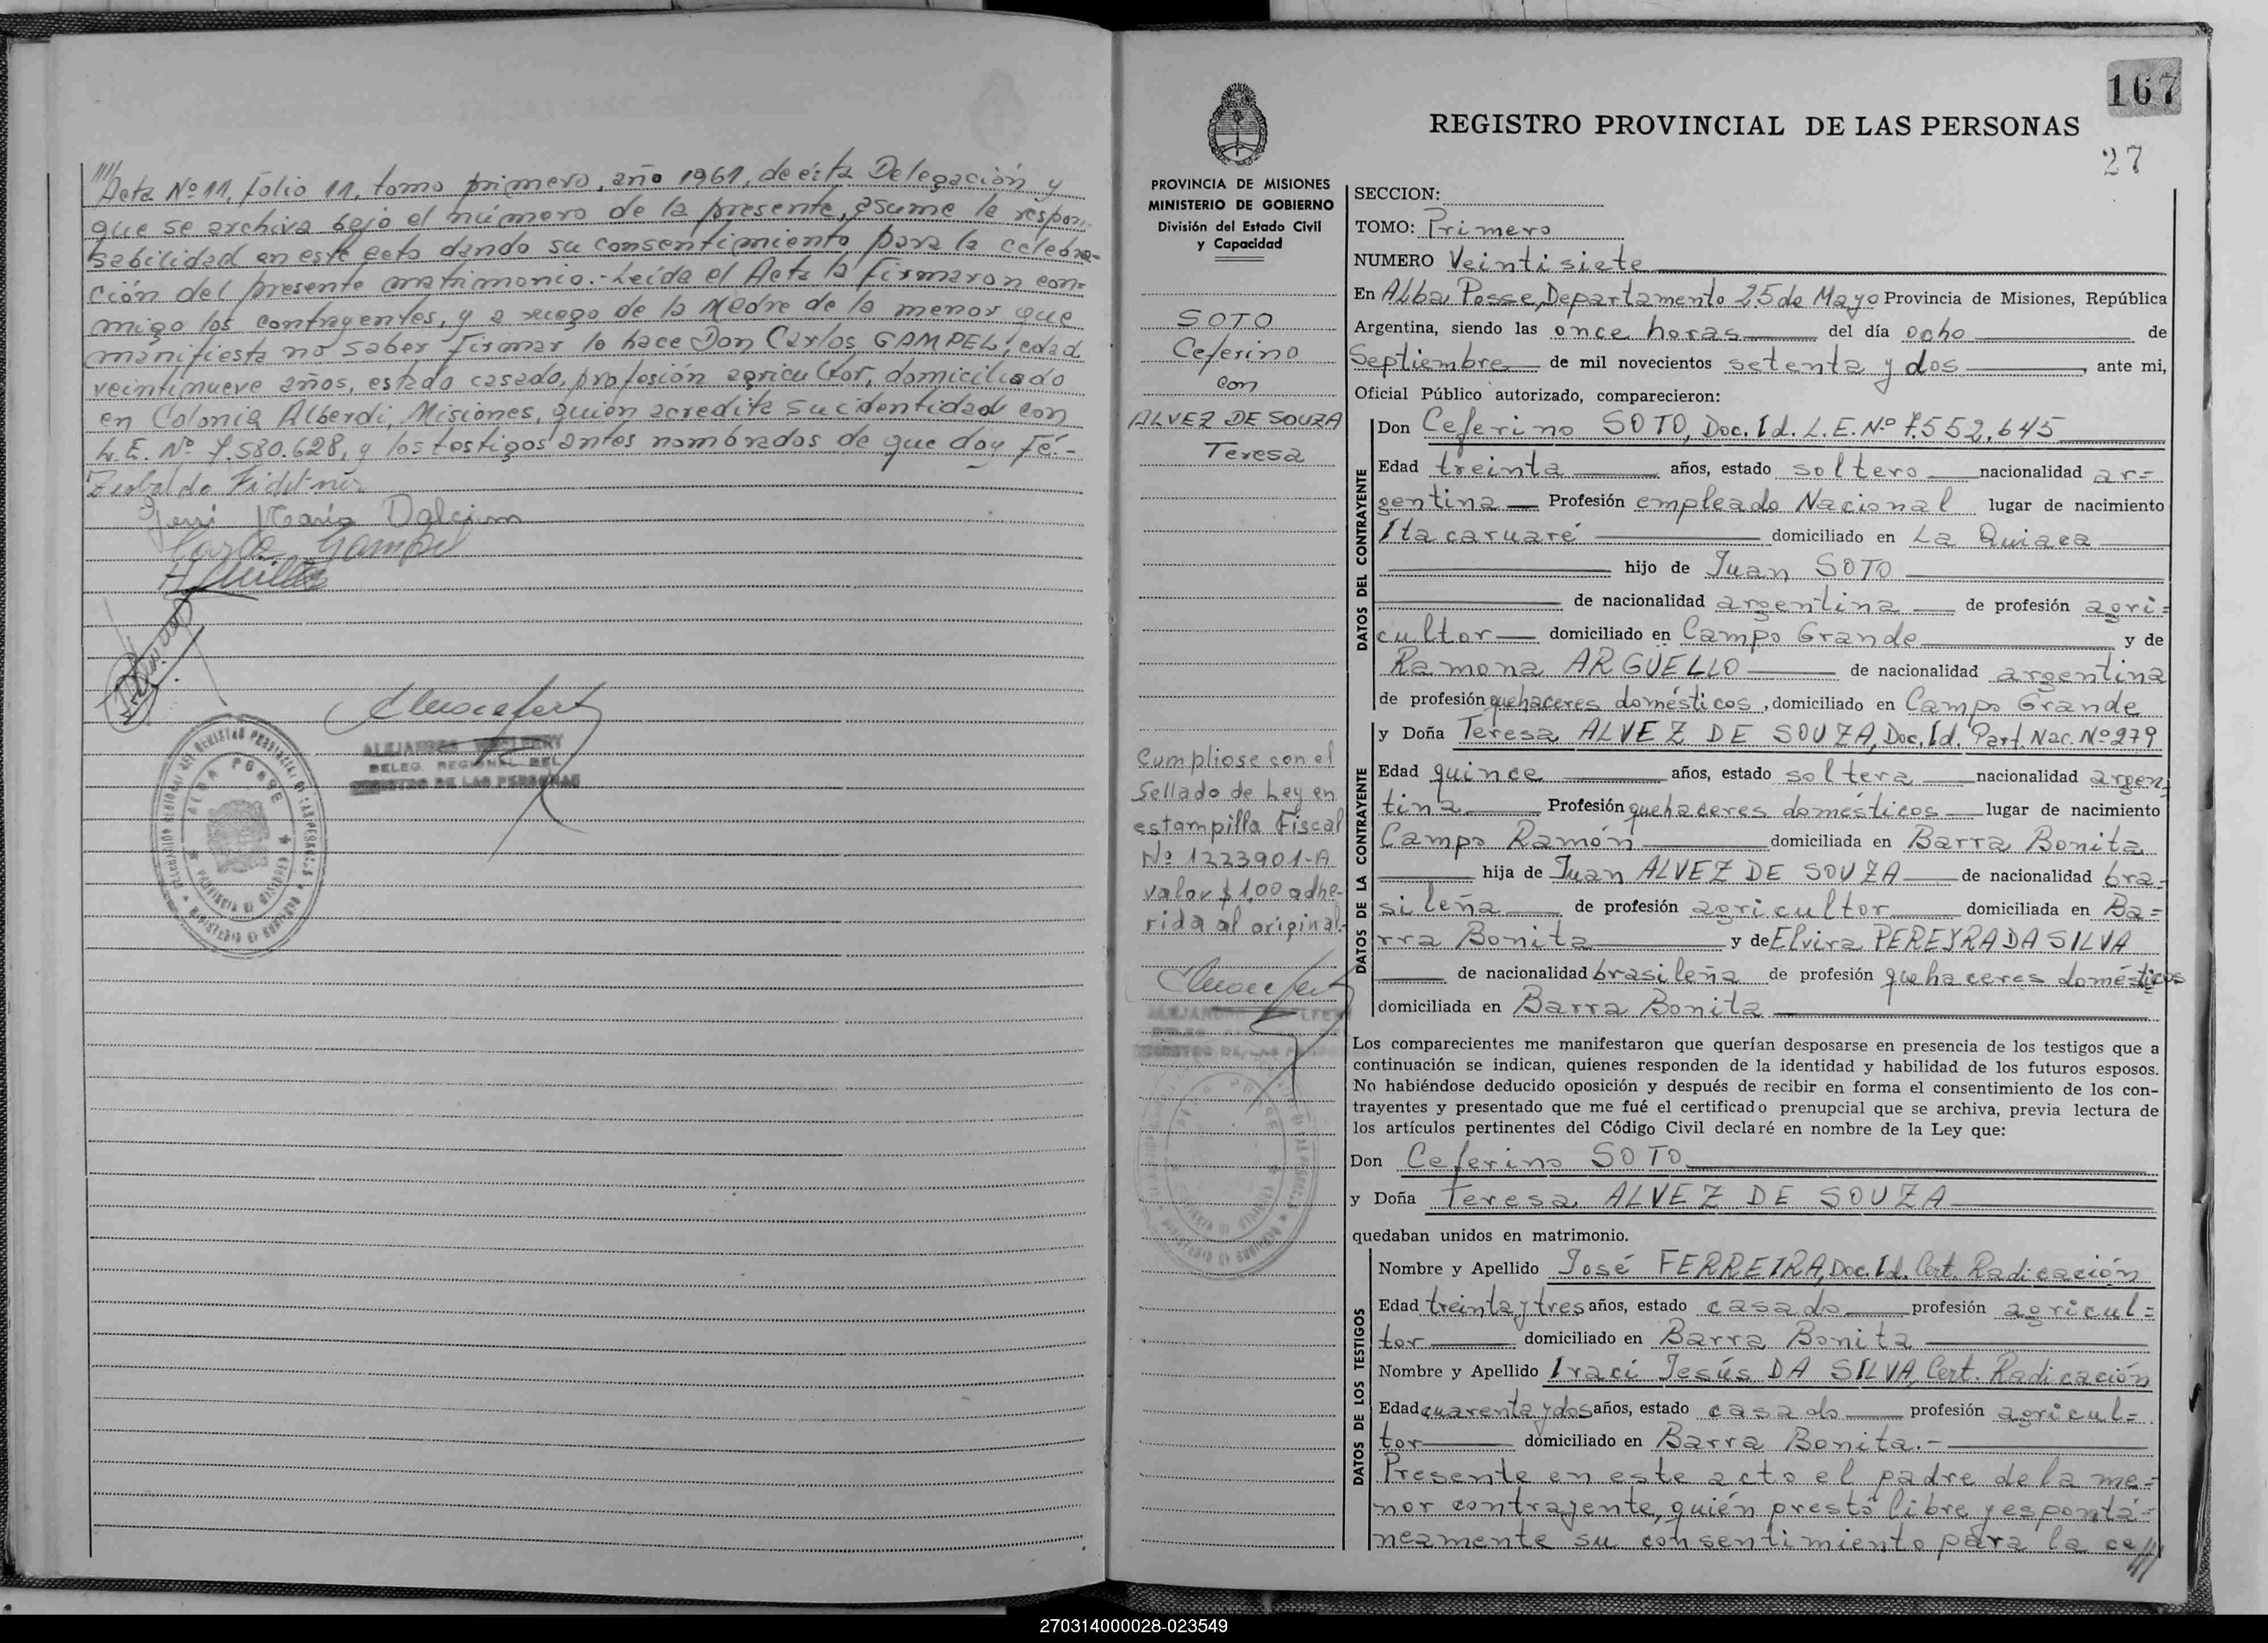 //// Acta Nº 11, Folio 11, tomo primero, año 1961, de ésta Delegación y
que se archiva bajo el número de la presente, asume la respon-
sabilidad en este acto dando su consentimiento para la celebra-
ción del presente matrimonio.- Leída el Acta la Firmaron con-
migo los contrayentes, y a ruego de la Madre de la menor que
manifiesta no saber Firmar lo hace Don Carlos GAMPEL, edad
veintinueve años, estado casado, profesión agricultor, domiciliado
en Colonia Alberdi, Misiones, quien acredita su identidad con
L.E. Nº 7.580.628, y los testigos antes nombrados de que doy Fé.-
Carlos Gampel
ALEJANDRO
DELEG. REGIONAL DEL
REGISTRO DE LAS PERSONAS
ALBA POSSE
167
REGISTRO PROVINCIAL DE LAS PERSONAS
27
PROVINCIA DE MISIONES
MINISTERIO DE GOBIERNO
División del Estado Civil
y Capacidad
SOTO
Ceferino
con
ALVEZ DE SOUZA
Teresa
Cumpliose con el
Sellado de Ley en
estampilla Fiscal
Nº 1223901-A
valor $ 1,00 adhe-
rida al original.-
SECCION:
TOMO: Primero
NUMERO Veintisiete
En Alba Posse, Departamento 25 de Mayo Provincia de Misiones, República
Argentina, siendo las once horas del día ocho de
Septiembre de mil novecientos setenta y dos, ante mi,
Oficial Público autorizado, comparecieron:
DATOS DEL CONTRAYENTE
Don Ceferino SOTO, Doc. Id. L.E. Nº 7.552.645
Edad treinta años, estado soltero nacionalidad ar=
gentina Profesión empleado Nacional lugar de nacimiento
Itacaruaré domiciliado en La Quiaca
hijo de Juan SOTO
de nacionalidad argentina de profesión agri=
cultor domiciliado en Campo Grande y de
Ramona ARGUELLO de nacionalidad argentina
de profesión quehaceres domésticos, domiciliado en Campo Grande
DATOS DE LA CONTRAYENTE
y Doña Teresa ALVEZ DE SOUZA, Doc. Id. Part. Nac. Nº 279
Edad quince años, estado soltera nacionalidad argen-
tina Profesión quehaceres domésticos lugar de nacimiento
Campo Ramón domiciliada en Barra Bonita
hija de Juan ALVEZ DE SOUZA de nacionalidad bra-
sileña de profesión agricultor domiciliada en Ba=
rra Bonita y de Elvira PEREYRA DA SILVA
de nacionalidad brasileña de profesión quehaceres domésticos
domiciliada en Barra Bonita
Los comparecientes me manifestaron que querían desposarse en presencia de los testigos que a
continuación se indican, quienes responden de la identidad y habilidad de los futuros esposos.
No habiéndose deducido oposición y después de recibir en forma el consentimiento de los con-
trayentes y presentado que me fué el certificado prenupcial que se archiva, previa lectura de
los artículos pertinentes del Código Civil declaré en nombre de la Ley que:
Don Ceferino SOTO
y Doña Teresa ALVEZ DE SOUZA
quedaban unidos en matrimonio.
DATOS DE LOS TESTIGOS
Nombre y Apellido José FERREIRA, Doc. Id. Cert. Radicación
Edad treinta y tres años, estado casado profesión agricul=
tor domiciliado en Barra Bonita
Nombre y Apellido Iraci Jesús DA SILVA, Cert. Radicación
Edad cuarenta y dos años, estado casado profesión agricul=
tor domiciliado en Barra Bonita.-
Presente en este acto el padre de la me=
nor contrayente, quién prestó libre y espontá=
neamente su consentimiento para la ce////
270314000028-023549